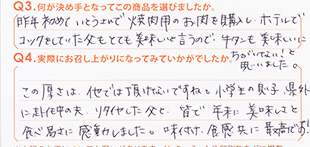 Q3.何が決め手となってこの商品を選びましたか。
昨年初めていとうさんで焼肉用のお肉を購入し、ホテルで
コックをしていた父もとても美味しいと言うので、牛タンも美味しいに
ちがいない!と
思いました。
Q4.実際にお召し上がりになってみていかがでしたか。
この厚さは、他では頂けないですね。小学生の息子、県外
に赴任中の夫、リタイヤした父と、皆で年末に美味しさと
食べ易さに感動しました。味付け、食感共に最高です!